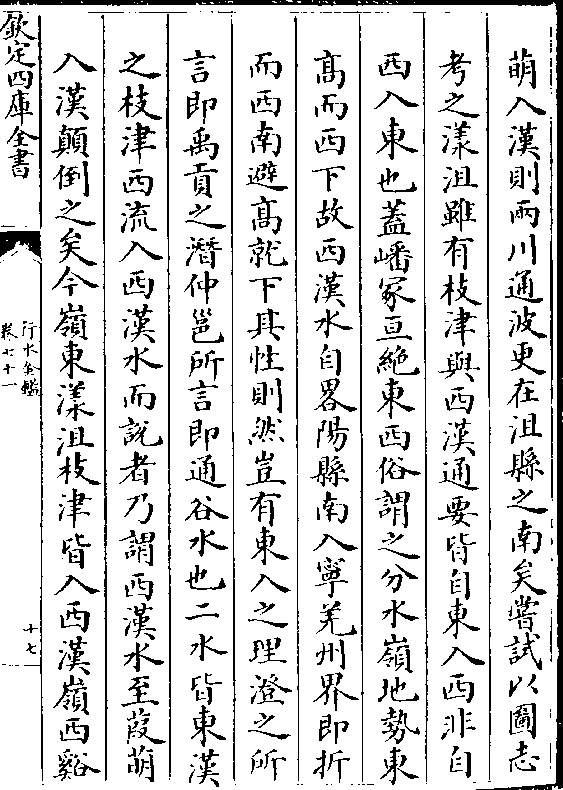 萌入漢則兩川通波更在沮縣之南矣嘗試以圖志
考之漾沮雖有枝津與西漢通要皆自東入西非自
西入東也蓋嶓冢亘絶東西俗謂之分水嶺地勢東
髙而西下故西漢水自畧陽縣南入寧羌州界即折
而西南避髙就下其性則然豈有東入之理澄之所
言即禹貢之潛仲邕所言即通谷水也二水皆東漢
之枝津西流入西漢水而説者乃謂西漢水至葭萌
入漢顛倒之矣今嶺東漾沮枝津皆入西漢嶺西谿
欽定四庫全書
行水金鑑
卷七十一
十七